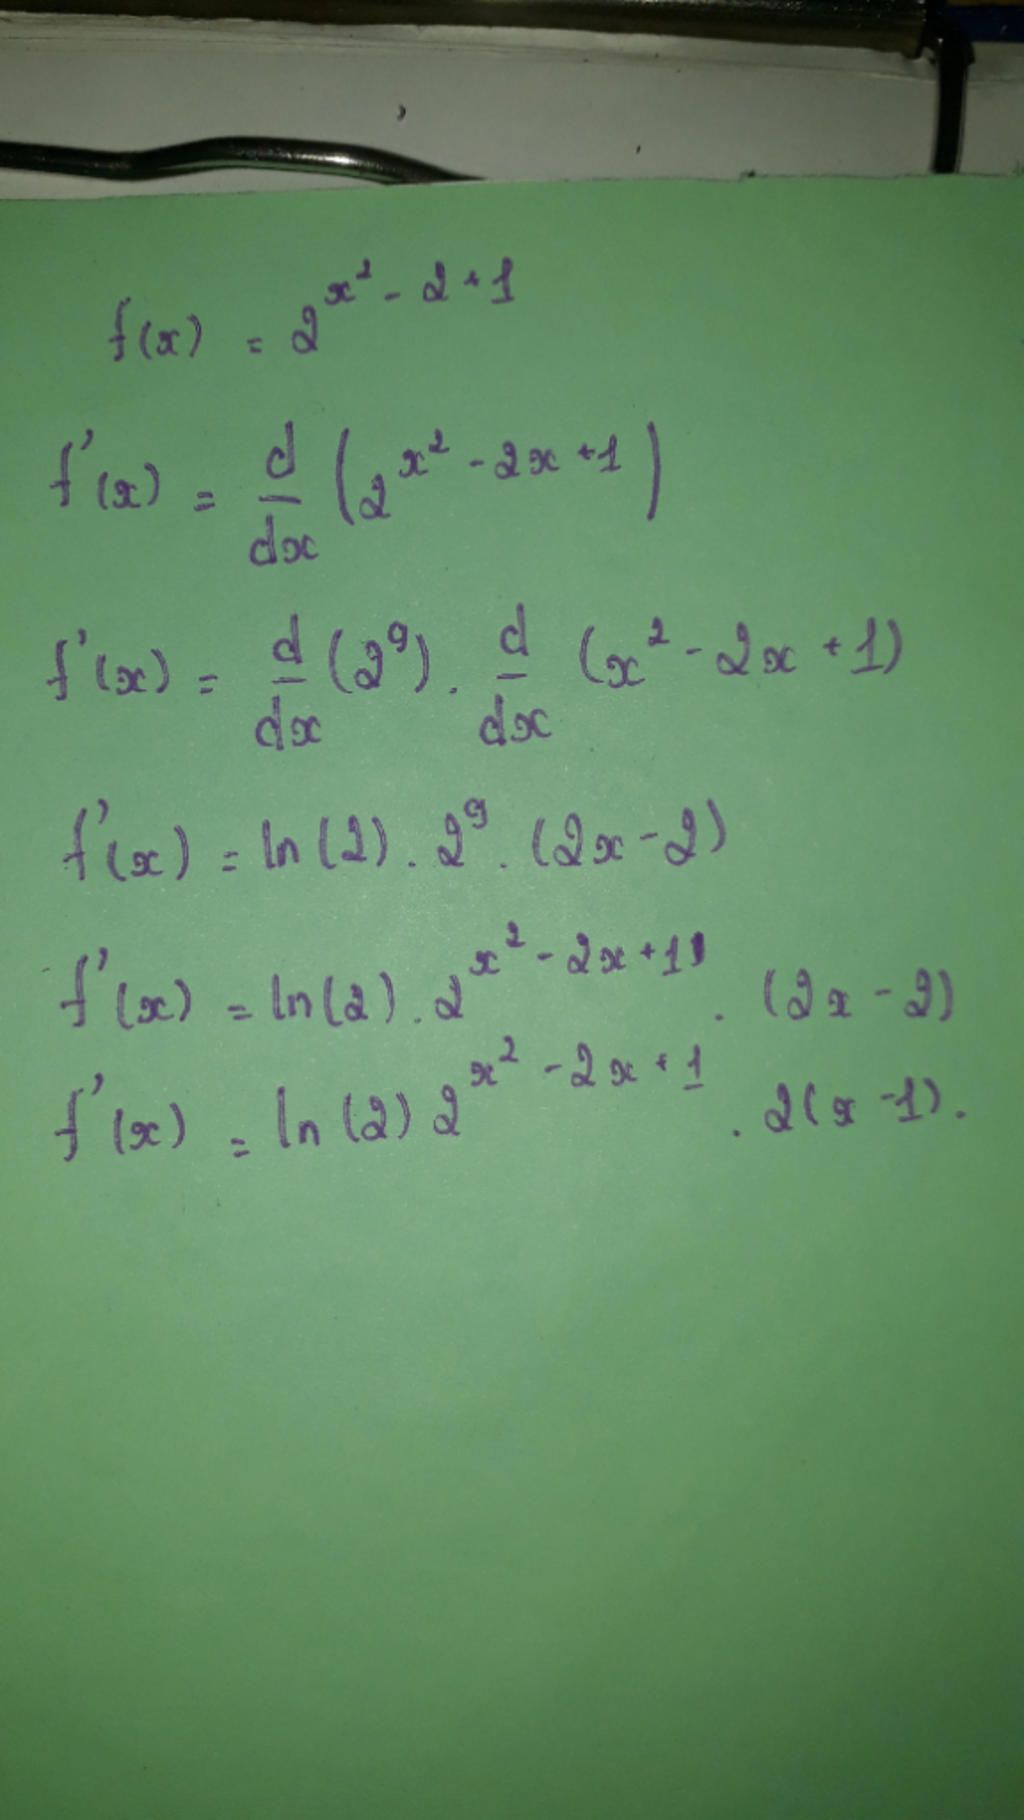 f(x) = 2^{x^2 - 2 + 1}
f'(x) = \frac{d}{dx} (2^{x^2 - 2x + 1})
f'(x) = \frac{d}{dx} (2^g) . \frac{d}{dx} (x^2 - 2x + 1)
f'(x) = ln(2) . 2^g . (2x - 2)
f'(x) = ln(2) . 2^{x^2 - 2x + 1} . (2x - 2)
f'(x) = ln(2) 2^{x^2 - 2x + 1} . 2(x - 1).